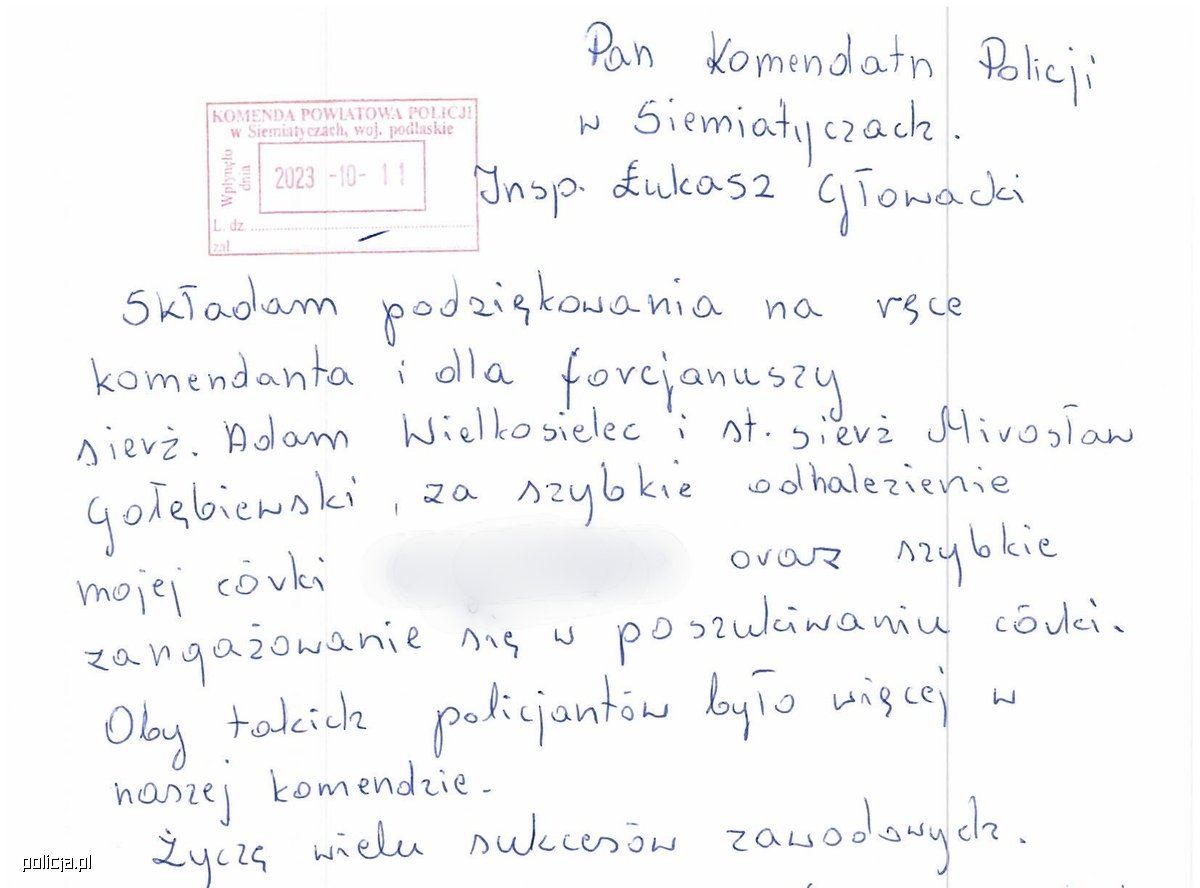 Pan Komendatn Policji
w Siemiatyczach.
Insp. Łukasz Głowacki
KOMENDA POWIATOWA POLICJI
w Siemiatyczach, woj. podlaskie
Wpłynęło
dnia
2023 -10- 11
L. dz.
zał
Składam podziękowania na ręce
komendanta i dla forcjanuszy
sierż. Adam Wielkosielec i st. sierż Mirosław
Gołębiewski, za szybkie odnalezienie
mojej córki oraz szybkie
zangażowanie się w poszukiwaniu córki.
Oby takich policjantów było więcej w
naszej komendzie.
Życzę wielu sukcesów zawodowych.
policja.pl